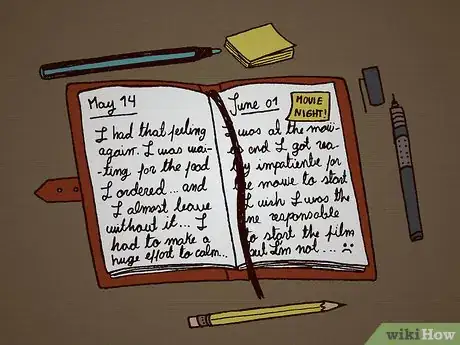 May 14
I had that feeling
again. I was wai-
ting for the food
I ordered... and
I almost leave
without it... I
had to make a
huge effort to calm...
June 01
MOVIE
NIGHT!
I was at the mov-
ies and I got rea-
ly impatiente for
the movie to start
I wish I was the
one responsable
to start the film
but I'm not...
wikiHow